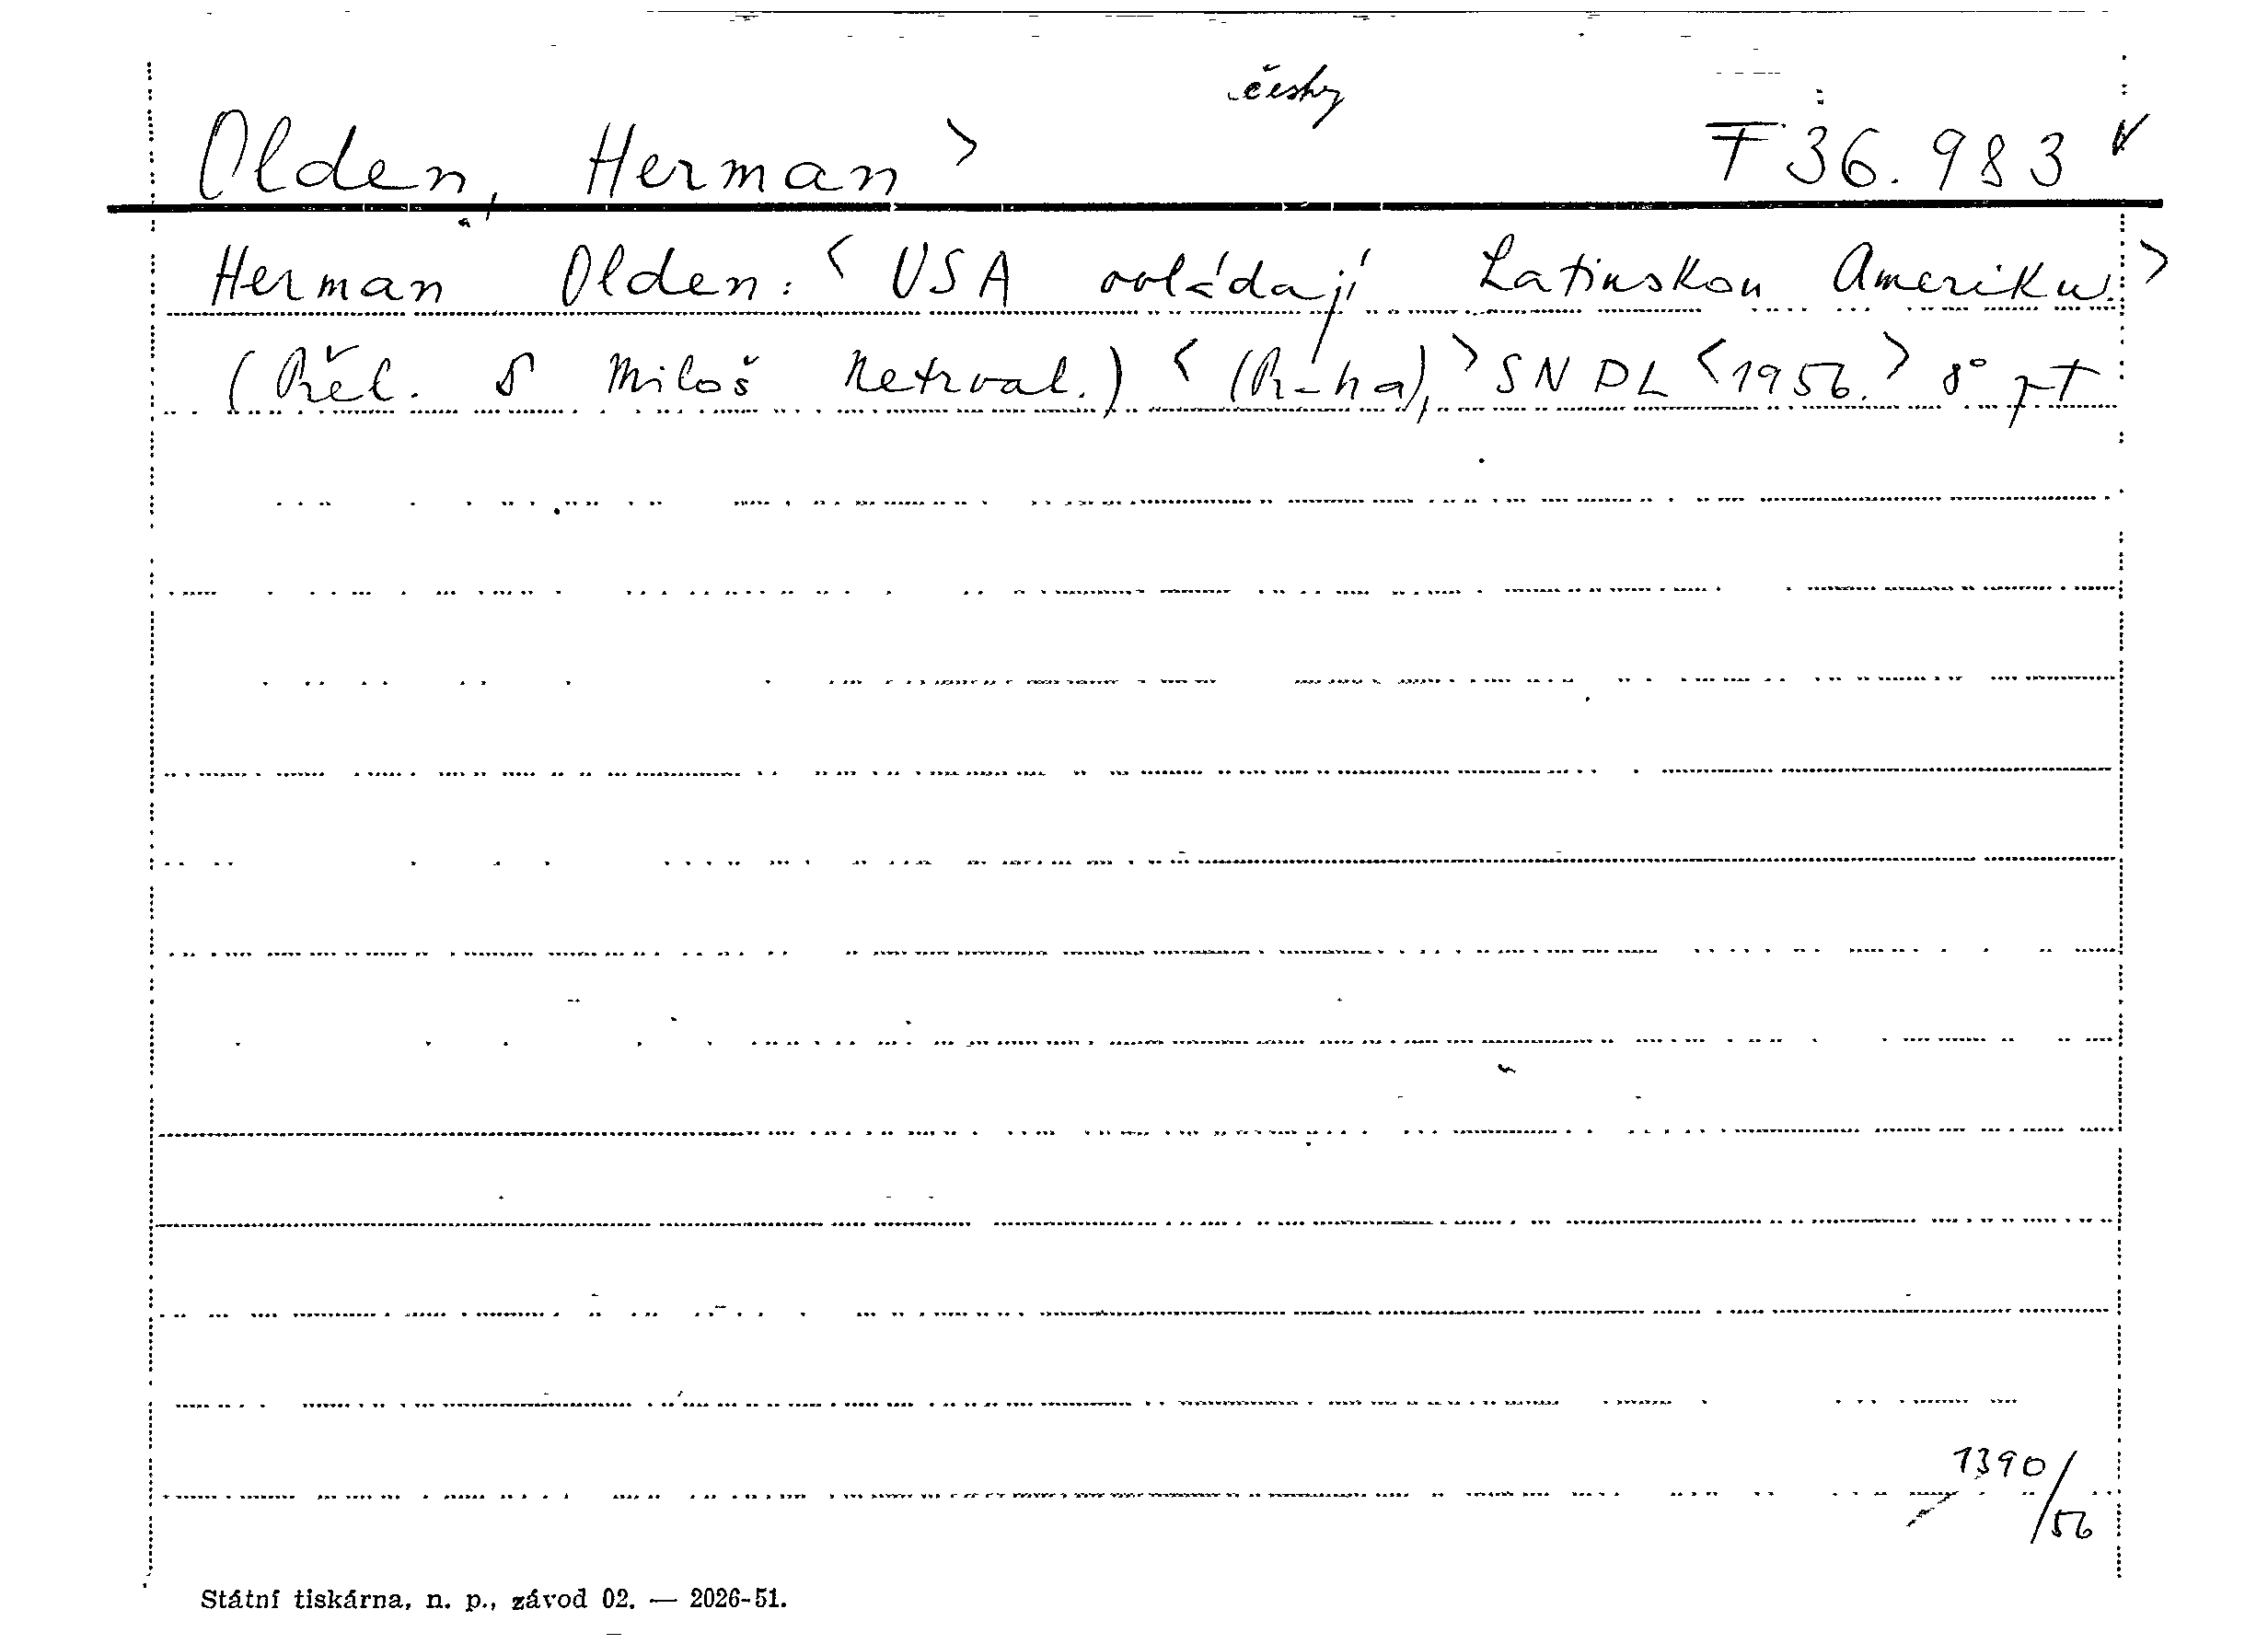 česky
Olden, Herman > F 36.983
Herman Olden: < USA ovládají Latinskou Ameriku. >
(Přel. Miloš Netrval.) < (Praha), > SNPL < 1956. > 8°
1390/56
Státní tiskárna, n. p., závod 02. — 2026-51.